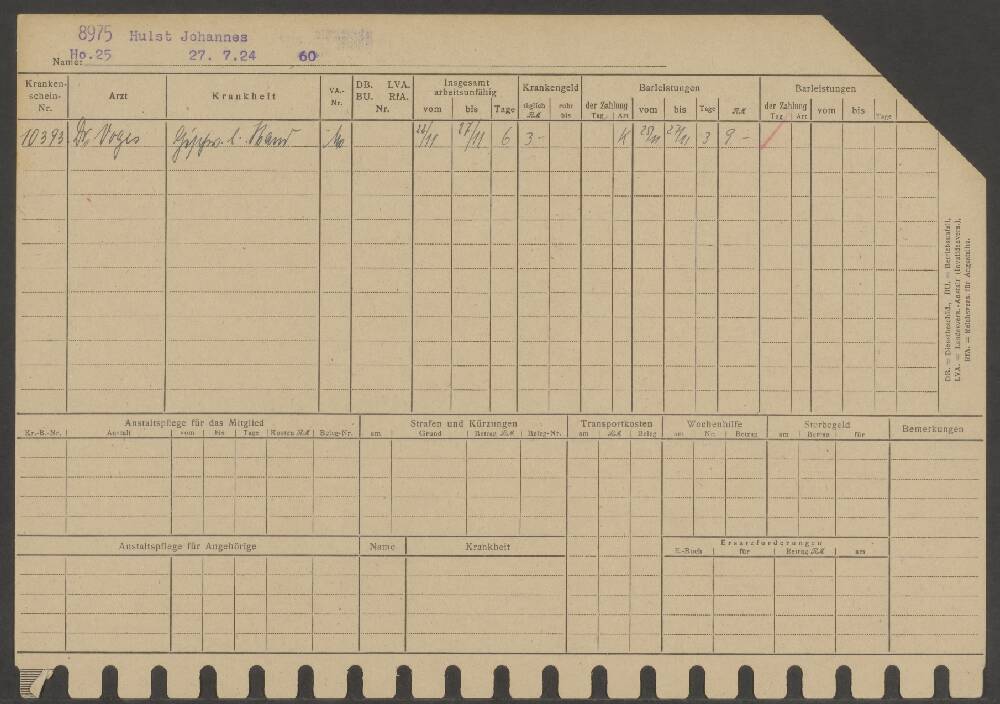 8975 Hulst Johannes
Name: Ho.25 27. 7.24 60
Kranken-schein-Nr. Arzt Krankheit VA.-Nr. DB. LVA. BU. RfA. Nr. Insgesamt arbeitsunfähig Krankengeld Barleistungen Barleistungen
vom bis Tage täglich RM ruht bis der Zahlung Tag Art vom bis Tage RM der Zahlung Tag Art vom bis Tage
10393 Dr. Voges l. Hand 22/11 27/11 6 3- K 25/11 27/11 3 9 -
DB. = Dienstbeschäd., BU. = Betriebsunfall,
LVA. = Landesvers.-Anstalt (Invalidenvers.),
RfA. = Reichsvers. für Angestellte.
Anstaltspflege für das Mitglied Strafen und Kürzungen Transportkosten Wochenhilfe Sterbegeld Bemerkungen
Kr.-B.-Nr. Anstalt vom bis Tage Kosten RM Beleg-Nr. am Grund Betrag RM Beleg-Nr. am RM Beleg am Nr. Betrag am Betrag für
Anstaltspflege für Angehörige Name Krankheit Ersatzforderungen
E.-Buch für Betrag RM am